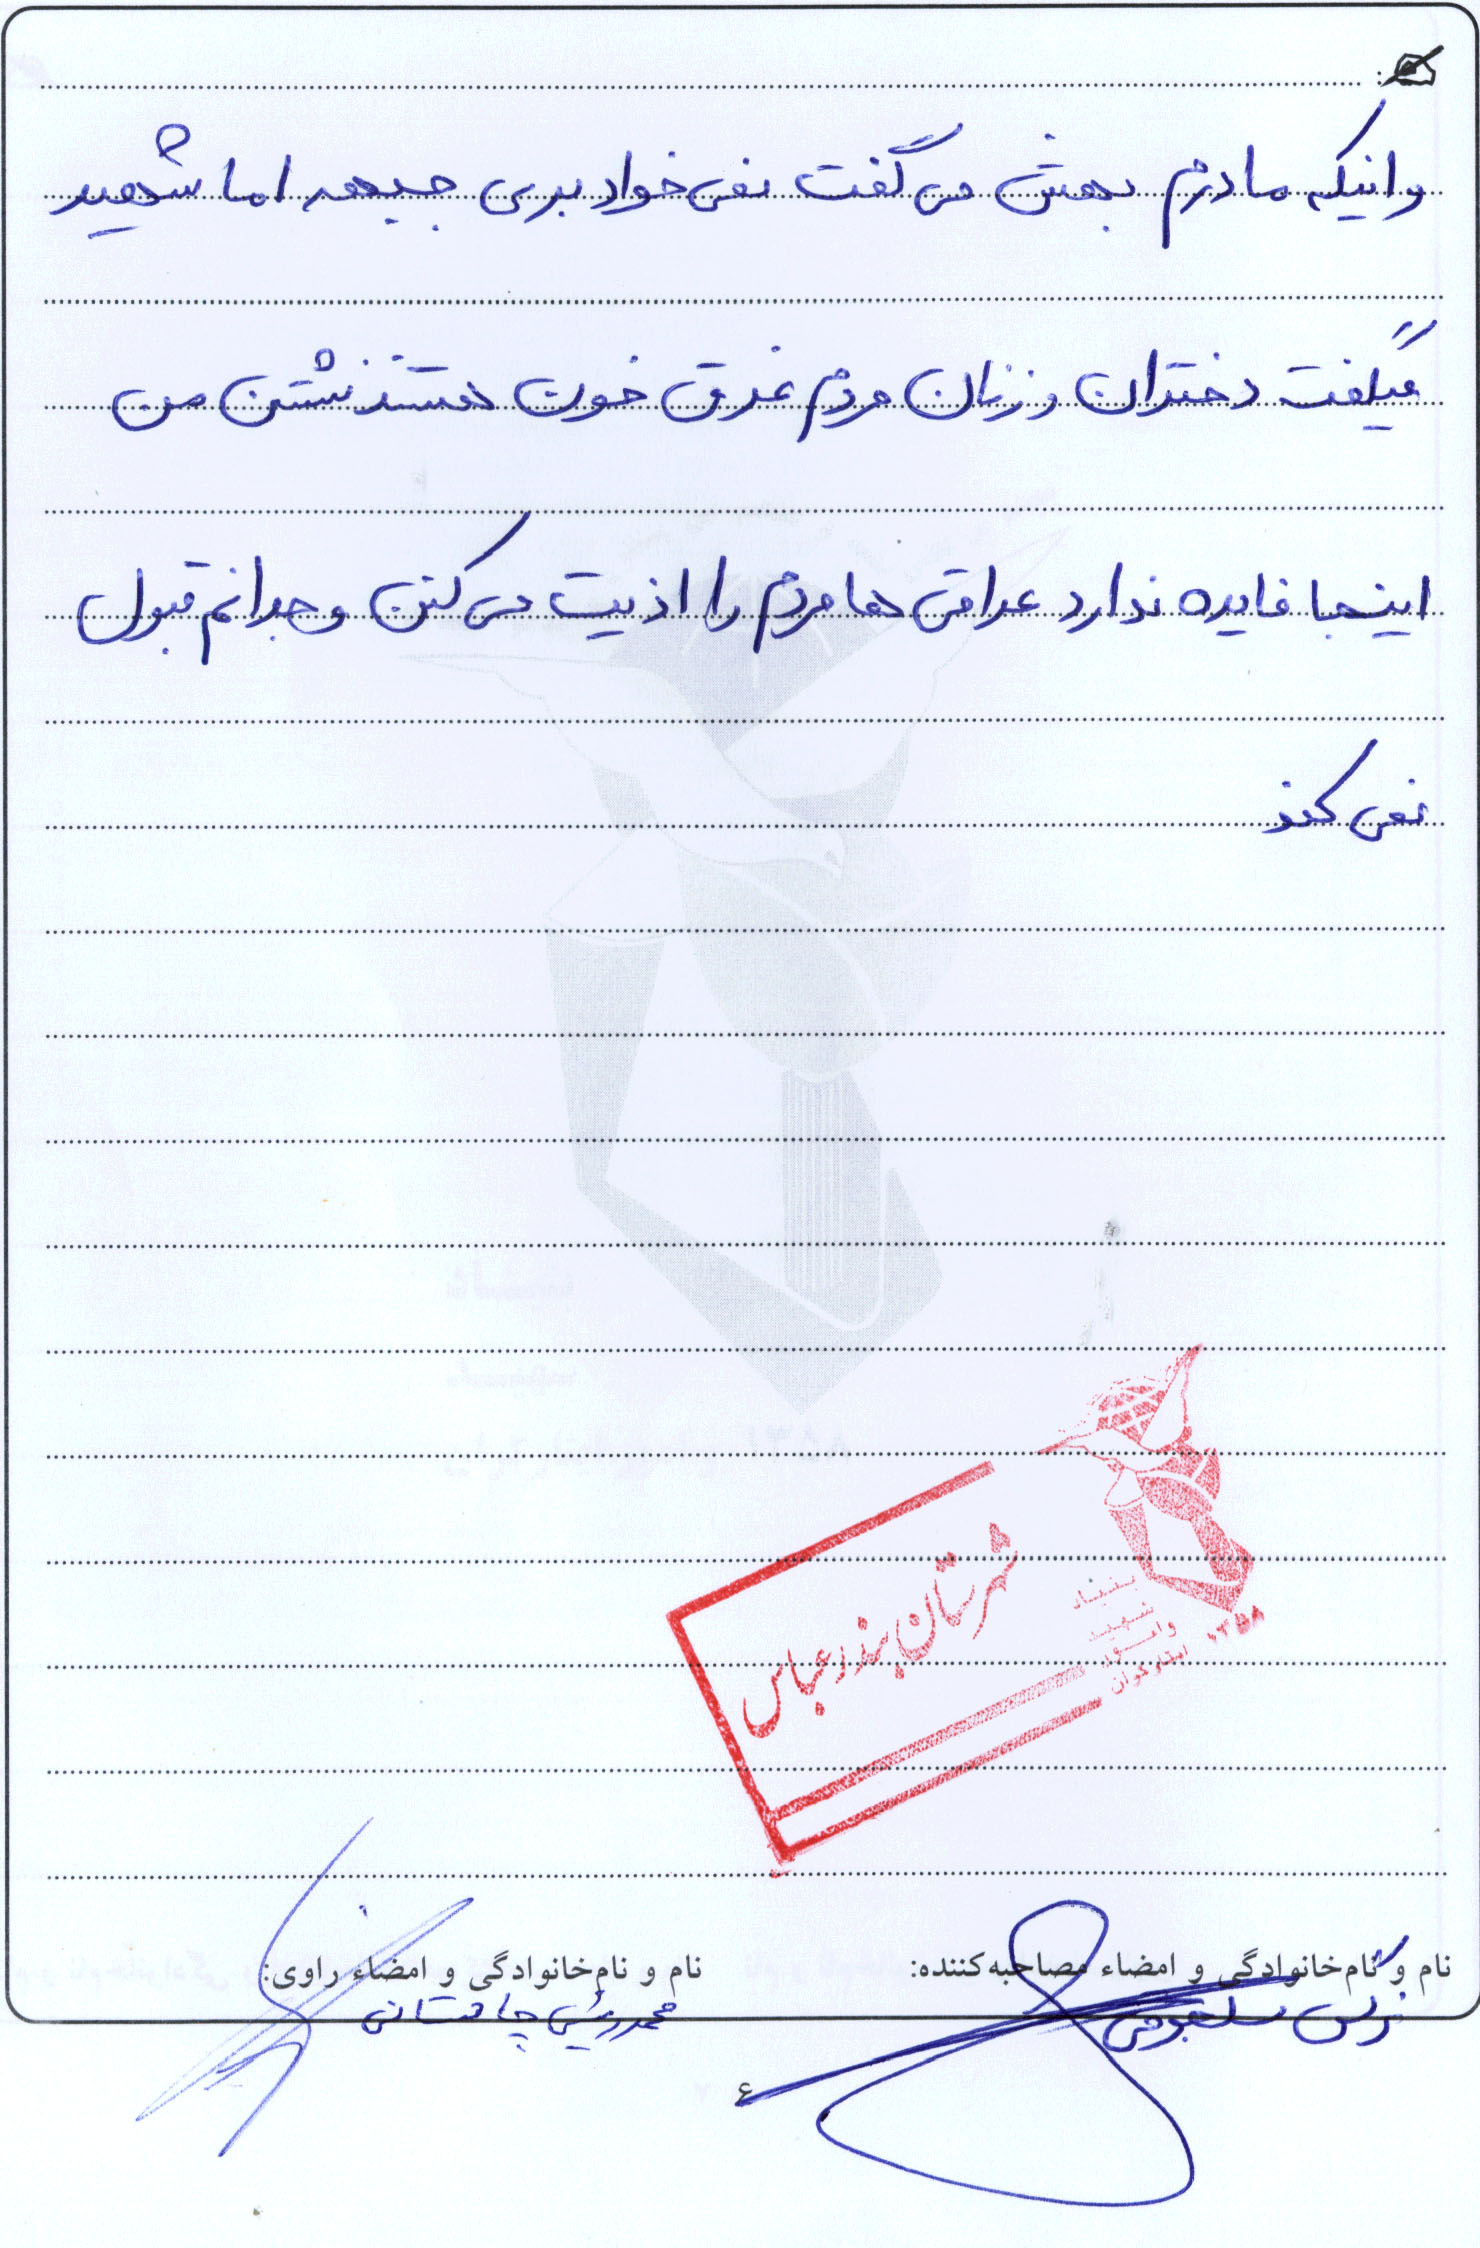 و اینکه مادرم بهش می گفت نمی خواد بری جبهه اما شهید
میگفت دختران و زنان مردم غرق خون هستند نشستن من
اینجا فایده ندارد عراقی ها مردم را اذیت می کنن وجدانم قبول
نمی کند
شهرستان بندرعباس
بنیاد
شهید
و امور
ایثارگران
۱۳۵۸
نام و نام‌خانوادگی و امضاء مصاحبه‌کننده:
نرگس سلحقوقی
نام و نام‌خانوادگی و امضاء راوی:
محمد رئیسی چاهستانی
۶